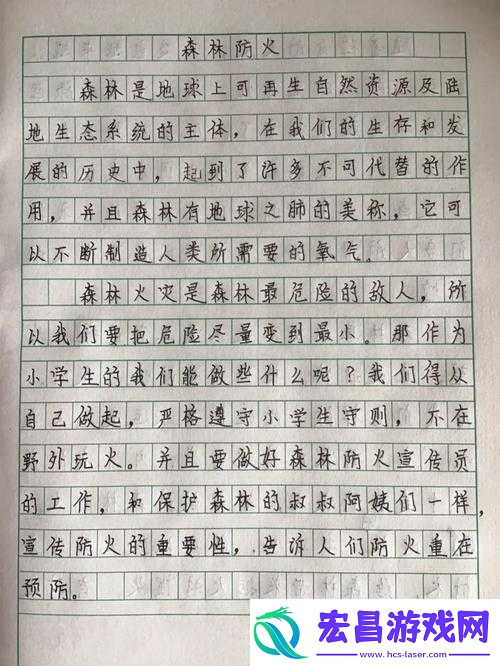 森林防火
森林是地球上可再生自然资源及陆
地生态系统的主体，在我们的生存和发
展的历史中，起到了许多不可代替的作
用，并且森林有地球之肺的美称，它可
以不断制造人类所需要的氧气。
森林火灾是森林最危险的敌人，所
以我们要把危险尽量变到最小。那作为
小学生的我们能做些什么呢？我们得从
自己做起，严格遵守小学生守则，不在
野外玩火。并且要做好森林防火宣传员
的工作，和保护森林的叔叔阿姨们一样，
宣传防火的重要性，告诉人们防火重在
预防。
宏昌游戏网
www.hcs-laser.com